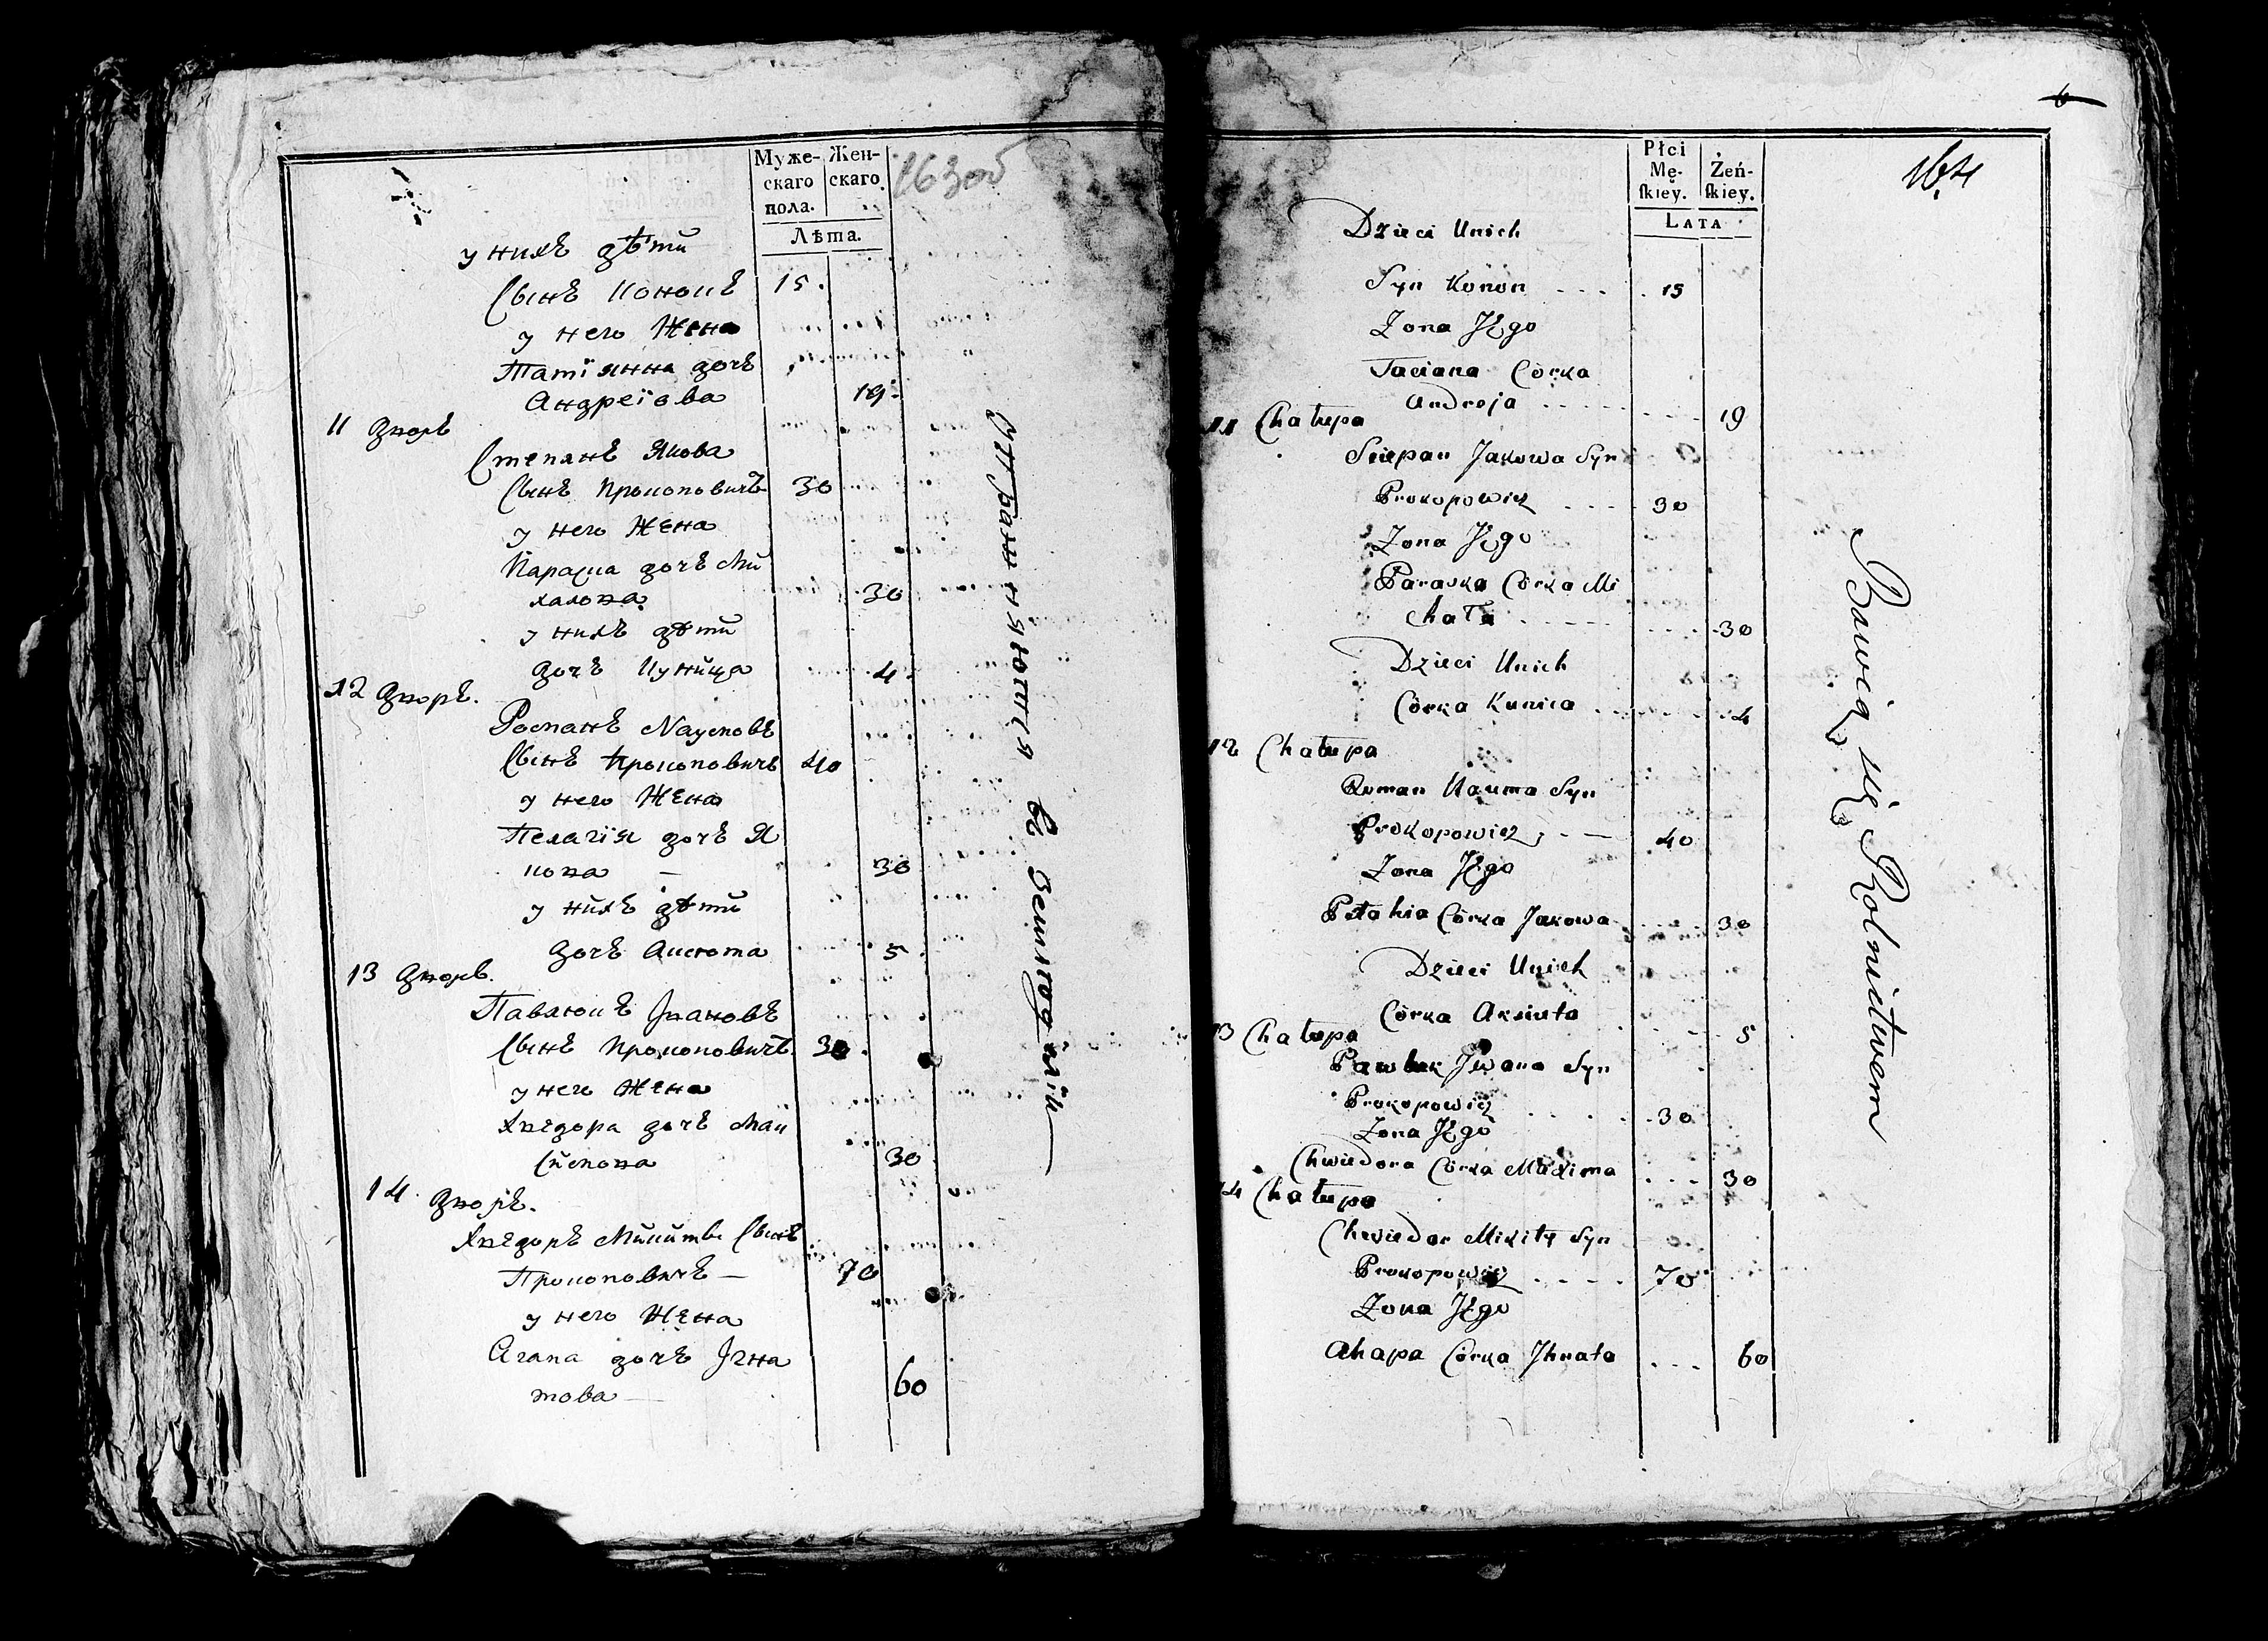 Муже-
скаго
пола.
Жен-
скаго
Лѣта.
163 об
у нихъ дѣти
Сынъ Кононъ 15.
у него Жена
Татіянна дочъ
Андреiова 19.
11 дворъ
Степанъ Якова
Сынъ Прокоповичъ 30
у него Жена
Параска дочъ Ми
халова 30
у нихъ дѣти
дочъ Куница 4.
12 дворъ.
Романъ Наумовъ
Сынъ Прокоповичъ 40
у него Жена
Пелагія дочъ Я
кова — 30
у нихъ дѣти
дочъ Аксюта 5.
13 дворъ.
Павлюкъ Івановъ
Сынъ Прокоповичъ 30.
у него Жена
Хведора дочъ Мак
симова 30
14. дворъ.
Хведоръ Микиты Сынъ
Прокоповичъ — 70
у него Жена
Агапа дочъ Ігна
това — 60
Упражняются въ Земледѣліи
6
164
Płci
Mę-
skiey.
Żeń-
skiey.
LATA
Dzieci Unich
Syn Konon 15
Zona Jego
Taciana Córka
Andreja 19
11 Chałupa
Sciepan Jakowa Syn
Prokopowicz 30
Zona Jego
Paraska Córka Mi
chała 30
Dzieci Unich
Córka Kunica 4
12 Chałupa
Roman Nauma Syn
Prokopowicz 40
Zona Jego
Pełahia Córka Jakowa 30
Dzieci Unich
Córka Aksiuta 5
13 Chałupa
Pawluk Jwana Syn
Prokopowicz 30
Zona Jego
Chwiedora Córka Maxima 30
14 Chałupa
Chwiedor Mikity Syn
Prokopowicz 70
Zona Jego
Ahapa Córka Jhnata 60
Bawią się Rolnictwem